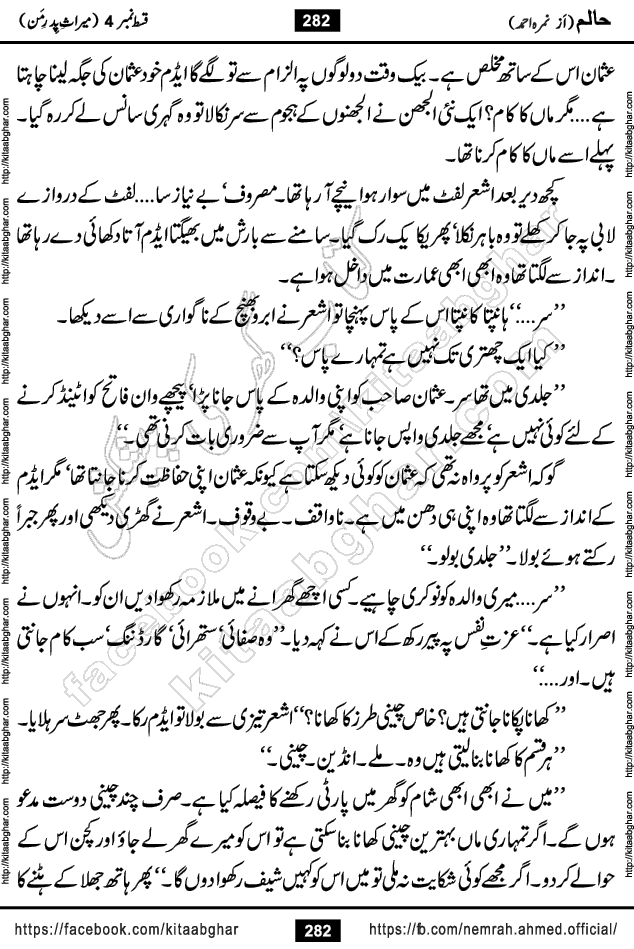 حالم (از نمرہ احمد) 282 قسط نمبر 4 (میراثِ پدرِ من)
عثمان اس کے ساتھ مخلص ہے۔ بیک وقت دو لوگوں پہ الزام سے تو لگے گا ایڈم خود عثمان کی جگہ لینا چاہتا
ہے....مگر ماں کا کام؟ ایک نئی الجھن نے الجھنوں کے ہجوم سے سر نکالا تو وہ گہری سانس لے کر رہ گیا۔
پہلے اسے ماں کا کام کرنا تھا۔
کچھ دیر بعد اشعر لفٹ میں سوار ہوا نیچے آ رہا تھا۔ مصروف‘ بے نیاز سا.... لفٹ کے دروازے
لابی پہ جا کر کھلے تو وہ باہر نکلا‘ پھر یکایک رک گیا۔ سامنے سے بارش میں بھیگتا ایڈم آتا دکھائی دے رہا تھا
۔ انداز سے لگتا تھا وہ ابھی ابھی عمارت میں داخل ہوا ہے۔
’’سر....‘‘ ہانپتا کانپتا اس کے پاس پہنچا تو اشعر نے ابرو بھینچ کے ناگواری سے اسے دیکھا۔
’’کیا ایک چھتری تک نہیں ہے تمہارے پاس؟‘‘
’’جلدی میں تھا سر۔ عثمان صاحب کو اپنی والدہ کے پاس جانا پڑا‘ پیچھے وان فاتح کو اٹینڈ کرنے
کے لئے کوئی نہیں ہے‘ مجھے جلدی واپس جانا ہے‘ مگر آپ سے ضروری بات کرنی تھی۔‘‘
گو کہ اشعر کو پرواہ نہ تھی کہ عثمان کو کوئی دیکھ سکتا ہے کیونکہ عثمان اپنی حفاظت کرنا جانتا تھا‘ مگر ایڈم
کے انداز سے لگتا تھا وہ اپنی ہی دھن میں ہے۔ ناواقف۔ بے وقوف۔ اشعر نے گھڑی دیکھی اور پھر جبراً
رکتے ہوئے بولا۔ ’’جلدی بولو۔‘‘
’’سر.... میری والدہ کو نوکری چاہیے۔ کسی اچھے گھرانے میں ملازمہ رکھوا دیں ان کو۔ انہوں نے
اصرار کیا ہے۔‘‘ عزتِ نفس پہ پیر رکھ کے اس نے کہہ دیا۔ ’’وہ صفائی‘ ستھرائی‘ گارڈننگ‘ سب کام جانتی
ہیں۔ اور....‘‘
’’کھانا پکانا جانتی ہیں؟ خاص چینی طرز کا کھانا؟‘‘ اشعر تیزی سے بولا تو ایڈم رکا۔ پھر جھٹ سر ہلایا۔
’’ہر قسم کا کھانا بنا لیتی ہیں وہ۔ ملے۔ انڈین۔ چینی۔‘‘
’’میں نے ابھی ابھی شام کو گھر میں پارٹی رکھنے کا فیصلہ کیا ہے۔ صرف چند چینی دوست مدعو
ہوں گے۔ اگر تمہاری ماں بہترین چینی کھانا بنا سکتی ہے تو اس کو میرے گھر لے جاؤ اور کچن اس کے
حوالے کر دو۔ اگر مجھے کوئی شکایت نہ ملی تو میں اس کو کہیں شیف رکھوا دوں گا۔‘‘ پھر ہاتھ جھلا کے ہٹنے کا
https://facebook.com/kitaabghar 282 https://fb.com/nemrah.ahmed.official/
http://kitaabghar.com http://kitaabghar.com http://kitaabghar.com http://kitaabghar.com http://kitaabghar.com http://kitaabghar.com http://kitaabghar.com http://kitaabghar.com
http://kitaabghar.com http://kitaabghar.com http://kitaabghar.com http://kitaabghar.com http://kitaabghar.com http://kitaabghar.com http://kitaabghar.com http://kitaabghar.com
facebook.com/kitaabghar
kitaabghar.com